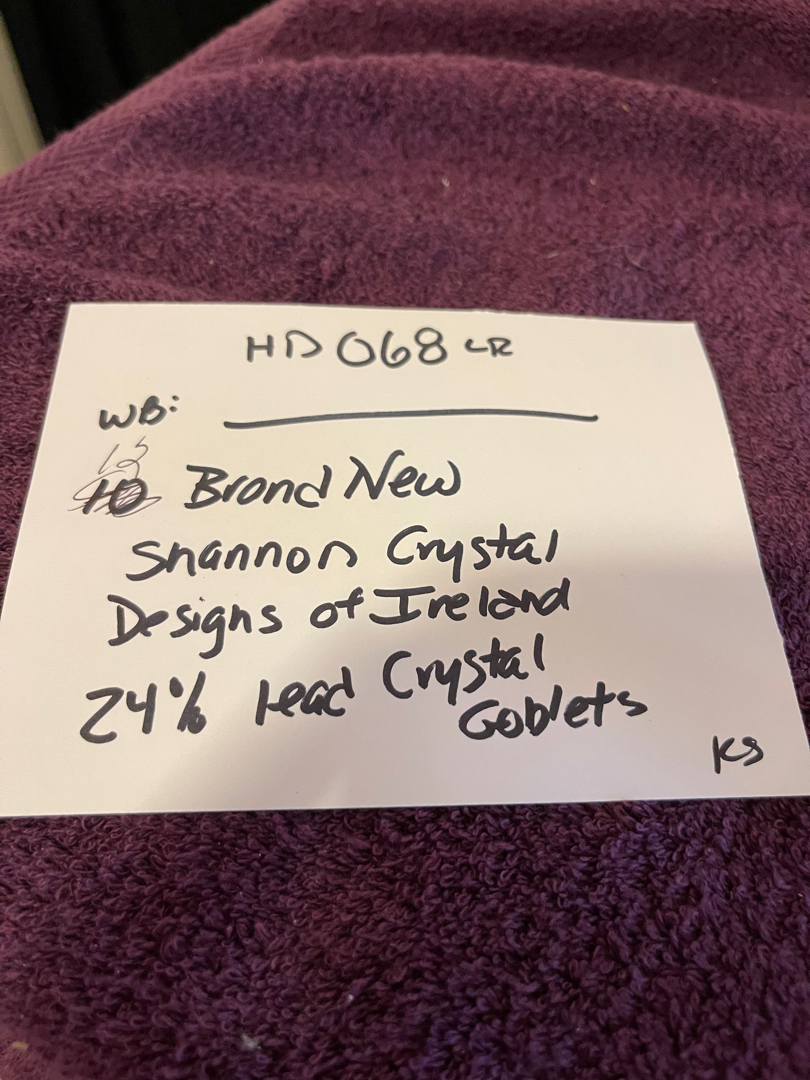 HD 068 LR
WB:
Brand New
Shannon Crystal
Designs of Ireland
24% Lead Crystal
Goblets
KS